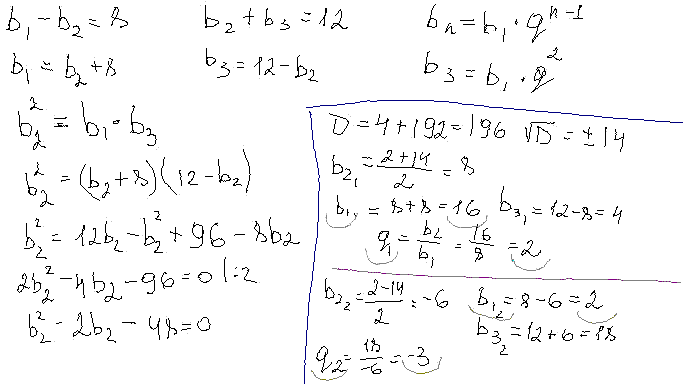 b₁ - b₂ = 8
b₂ + b₃ = 12
bₙ = b₁ · qⁿ⁻¹
b₁ = b₂ + 8
b₃ = 12 - b₂
b₃ = b₁ · q²
b₂² = b₁ · b₃
b₂² = (b₂ + 8)(12 - b₂)
b₂² = 12b₂ - b₂² + 96 - 8b₂
2b₂² - 4b₂ - 96 = 0 |:2
b₂² - 2b₂ - 48 = 0
D = 4 + 192 = 196 √D = ±14
b₂₁ = (2+14)/2 = 8
b₁₁ = 8 + 8 = 16 b₃₁ = 12 - 8 = 4
q₁ = b₂/b₁ = 16/8 = 2
b₂₂ = (2-14)/2 = -6 b₁₂ = 8 - 6 = 2
b₃₂ = 12 + 6 = 18
q₂ = 18/-6 = -3